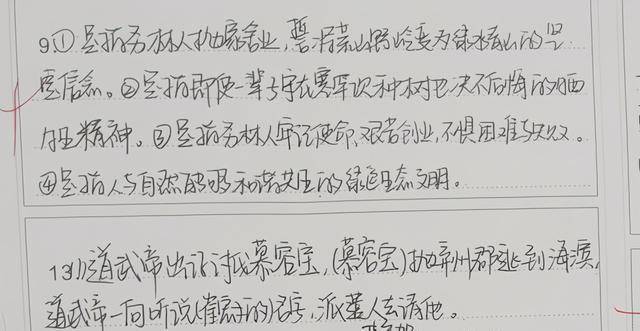 9.①是指务林人抛家舍业,誓将荒山野岭变为绿水青山的坚
定信念。②是指即使一辈子守在塞罕坝种树也决不后悔的牺
牲精神。③是指务林人牢记使命、艰苦创业,不惧困难与失败。
④是指人与自然和谐共生的绿色生态文明。
13(1)道武帝出讨慕容宝,(慕容宝)抛弃州郡逃到海滨,
道武帝一向听说(崔)的名声,派人去请他。